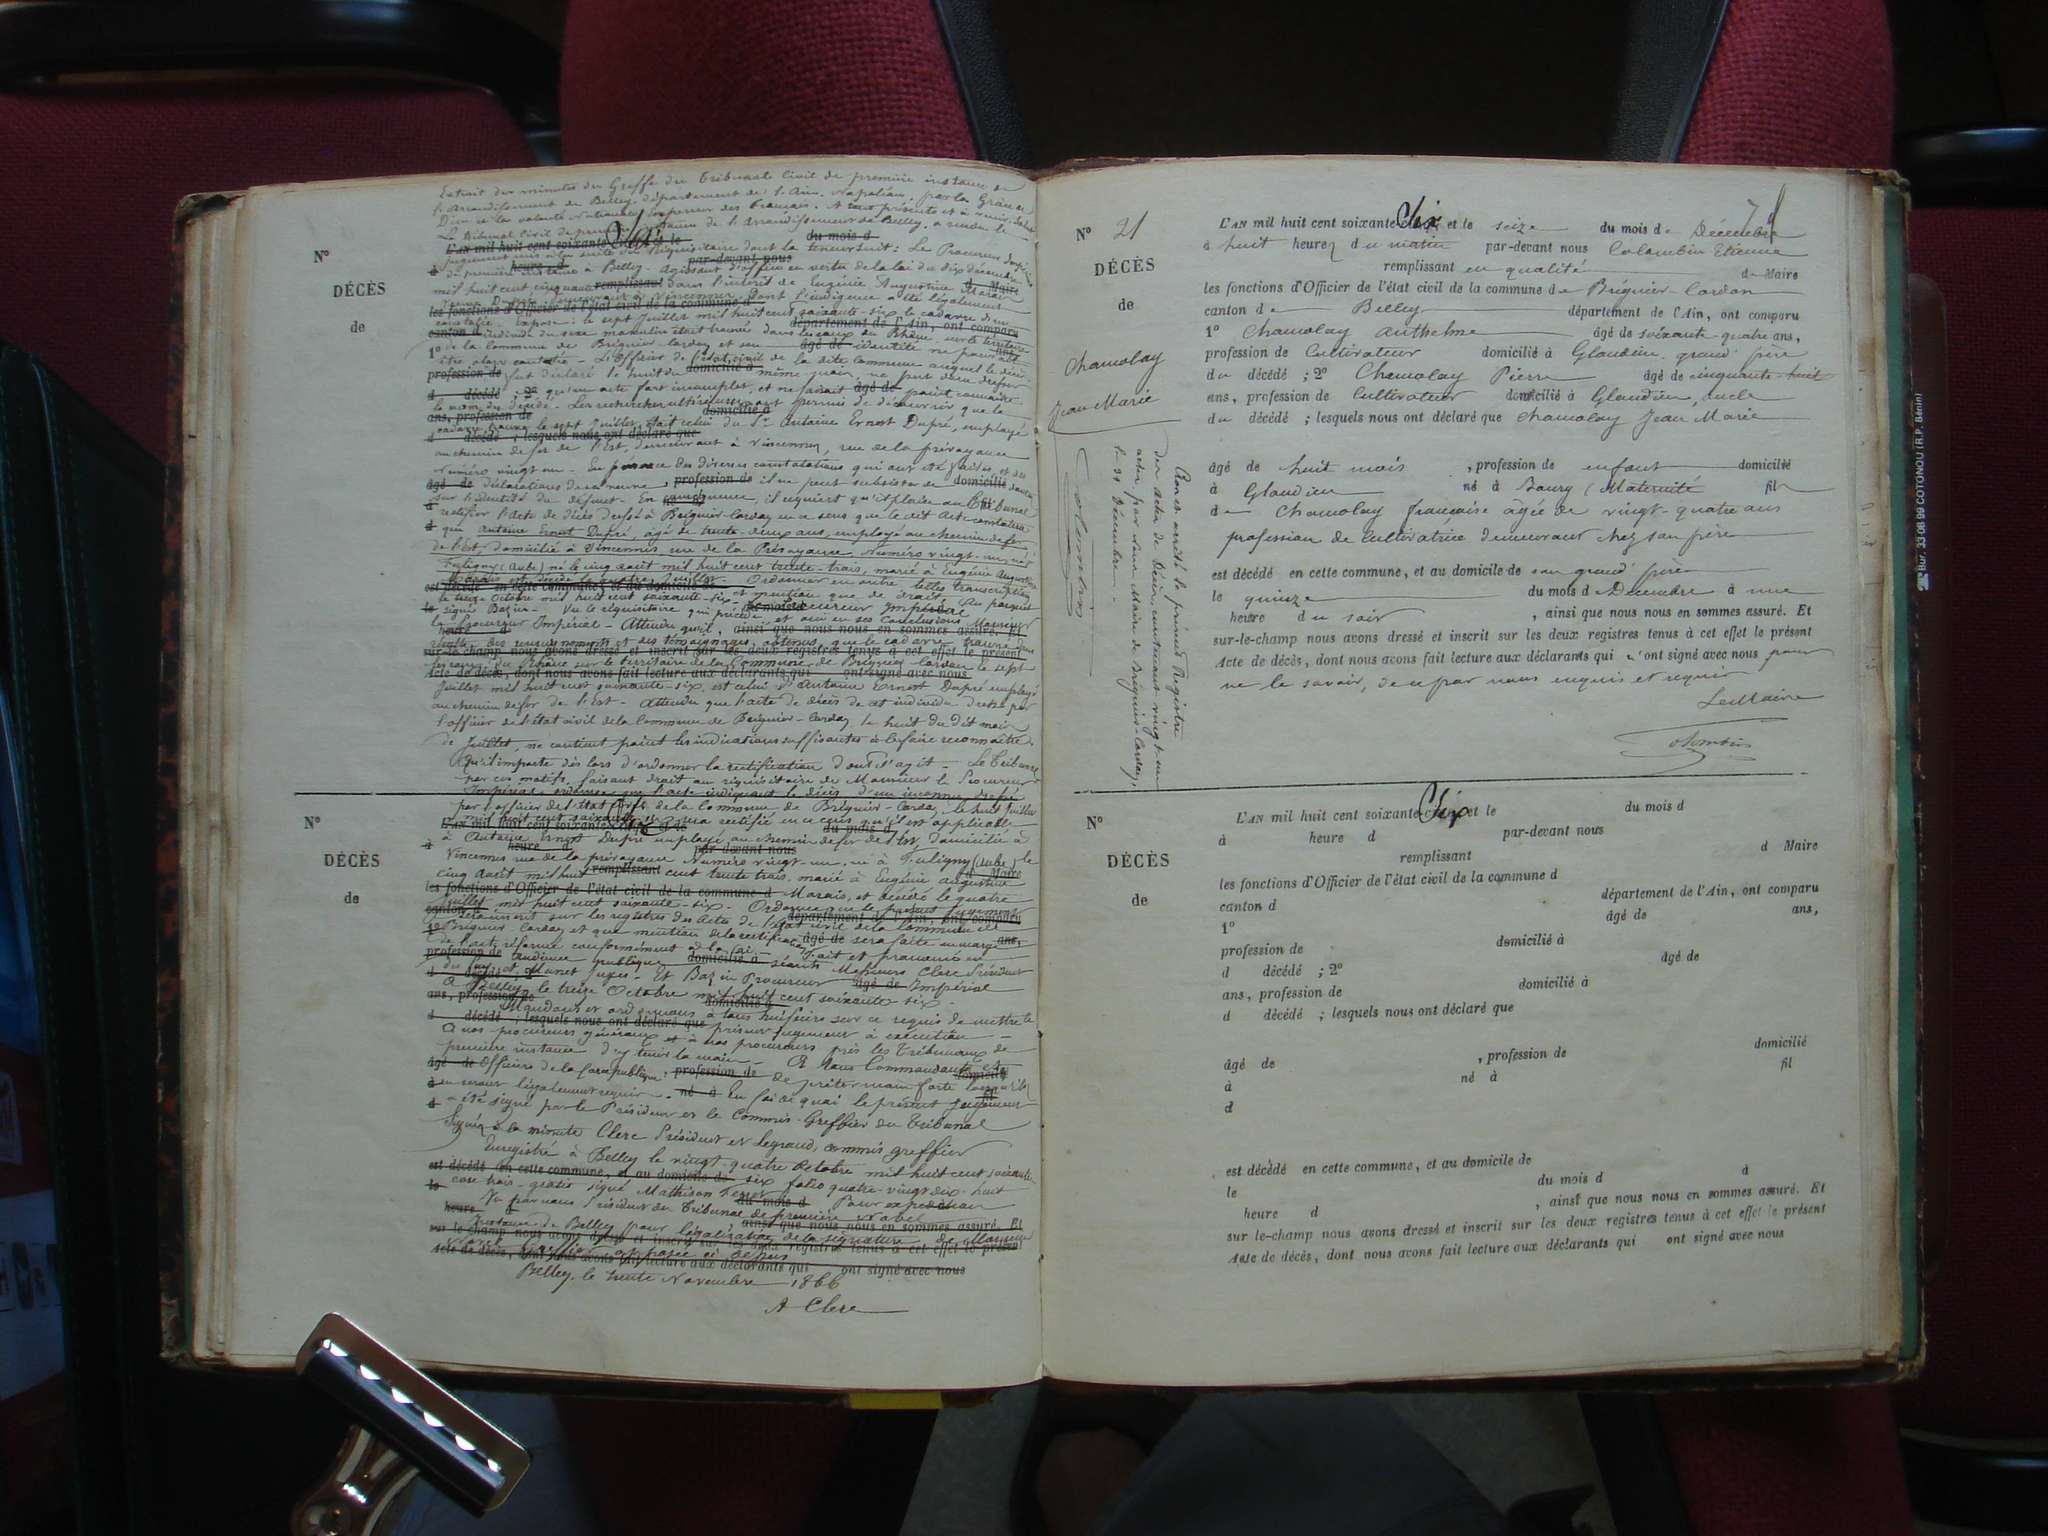 Extrait des minutes du Greffe du Tribunal civil de première instance de
l'arrondissement de Belley, département de l'Ain. Napoléon, par la Grâce de
Dieu et la volonté Nationale, Empereur des Français. A tous présents et à venir, Salut
Le Tribunal civil de première instance de l'Arrondissement de Belley, a rendu le
L'AN mil huit cent soixante six et le du mois d
jugement mis à la suite du Réquisitoire dont la teneur suit : Le Procureur Impérial
à heure d par-devant nous
de première instance à Belley. Agissant d'office en vertu de la loi du dix décembre
mil huit cent cinquante remplissant dans l'intérêt de Eugénie Augustine Marais d Maire
demeurant à Vincennes, dont l'indigence a été légalement
les fonctions d'Officier de l'état civil de la commune d
constatée. Expose : le sept Juillet mil huit cent soixante-six le cadavre d'un
canton d département de l'Ain, ont comparu
individu du sexe masculin était trouvé dans les eaux du Rhône, sur le territoire
1° de la commune de Brégnier-Cordon et son âgé de identité ne pouvait ans
être alors constatée - L'officier de l'état civil de la dite commune auquel le décès
profession de fut déclaré le huit du domicilié à même mois, ne put donc dresser
d décédé ; 2° qu'un acte fort incomplet, et ne faisait âgé de point connaître
le nom du décédé. Les recherches ultérieures ont permis de découvrir que le
ans, profession de domicilié à
cadavre trouvé le sept Juillet, était celui du Sr Antoine Ernest Dupré, employé
d décédé ; lesquels nous ont déclaré que
au chemin de fer de l'Est, demeurant à Vincennes, rue de la prévoyance
Numéro vingt-un - En présence des diverses constatations qui ont été faites, et des
âgé de déclarations , profession de il ne peut subsister de domicilié doute
sur l'identité du défunt - En conséquence, il requiert qu'il plaise au Tribunal
rectifier l'Acte de décès dressé à Brégnier-Cordon en ce sens que le dit acte constatera
d que Antoine Ernest Dupré, âgé de trente-deux ans, employé au chemin de fer
de l'Est domicilié à Vincennes, rue de la Prévoyance Numéro vingt-un, né à
Fuligny (Aube) né le cinq août mil huit cent trente-trois, marié à Eugénie Augustine
Marais est décédé le quatre Juillet. Ordonner en outre telles transcription
est décédé en cette commune, et au domicile de
et mention que de droit. Au parquet
le treize Octobre mil huit cent soixante-six
signé Bazin - Vu le réquisitoire qui précède et ouï en ses Conclusions Monsieur
le Procureur Impérial - Attendu qu'il
heure d , ainsi que nous nous en sommes assuré. Et
résulte des renseignements et des témoignages obtenus, que le cadavre trouvé dans
sur-le-champ nous avons dressé et inscrit sur les deux registres tenus à cet effet le présent
les eaux du Rhône sur le territoire de la Commune de Brégnier-Cordon le sept
Acte de décès, dont nous avons fait lecture aux déclarants qui ont signé avec nous
Juillet mil huit cent soixante-six, est celui d'Antoine Ernest Dupré employé
au chemin de fer de l'Est - Attendu que l'acte de décès de cet individu dressé par
l'officier de l'état civil de la Commune de Brégnier-Cordon le huit du dit mois
de Juillet, ne contient point les indications suffisantes à le faire reconnaître
Qu'il importe dès lors d'ordonner la rectification dont s'agit - Le Tribunal
par ces motifs, faisant droit au réquisitoire de Monsieur le Procureur
Impérial, ordonne que l'acte indiquant le décès d'un inconnu dressé
par l'officier de l'état civil de la Commune de Brégnier-Cordon, le huit Juillet
mil huit cent soixante six sera rectifié en ce sens qu'il est applicable
L'AN mil huit cent soixante six et le du mois d
à Antoine Ernest Dupré employé au chemin de fer de l'Est, domicilié à
à heure d par-devant nous
Vincennes rue de la prévoyance Numéro vingt-un, né à Fuligny (Aube) le
cinq Août mil huit remplissant cent trente trois, marié à Eugénie Augustine d Maire
les fonctions d'Officier de l'état civil de la commune d Marais, et décédé le quatre
Juillet mil huit cent soixante-six - Ordonne que le présent jugement
canton d département de l'Ain, ont comparu
sera transcrit sur les registres des Actes de l'état civil de la Commune de
Brégnier-Cordon et que mention de la rectification âgé de sera faite en marge ans,
de l'acte réformé conformément à la loi. Fait et prononcé en
profession de audience publique domicilié à séants Messieurs Clerc Président
et Munet Juges - Et Bazin Procureur âgé de Impérial
A Belley, le treize Octobre mil huit cent soixante six -
ans, profession de domicilié à
Mandons et ordonnons à tous huissiers sur ce requis de mettre le
d décédé ; lesquels nous ont déclaré que présent jugement à exécution -
A nos procureurs généraux et à nos procureurs près les Tribunaux de
première instance d'y tenir la main - A tous Commandants et
âgé de Officiers de la force publique, profession de de prêter main forte lorsqu'ils domicilié
à en seront légalement requis. né à En foi de quoi le présent jugement fil
d a été signé par le Président et le Commis-Greffier du Tribunal
Signé à la minute Clerc Président et Legrand, commis greffier
Enregistré à Belley le vingt-quatre Octobre mil huit cent soixante
est décédé en cette commune, et au domicile de six folio quatre-vingt dix-huit
case trois - gratis signé Mathison
le du mois d Pour expédition
Vu par nous Président du Tribunal de première
heure d
Instance de Belley pour légalisation de la signature de Monsieur
ainsi que nous nous en sommes assuré. Et
sur le-champ nous avons dressé et inscrit sur les deux registres tenus à cet effet le présent
apposée ci-dessus
Acte de décès, dont nous avons fait lecture aux déclarants qui ont signé avec nous
Belley, le trente Novembre 1866
A Clerc
N°
DÉCÈS
de
N°
DÉCÈS
de
N° 21
DÉCÈS
de
Chamolay
Jean Marie
Clos et arrêté le présent Registre
des actes de Décès, contenant vingt-un
actes par nous Maire de Brégnier-Cordon,
le 31 Décembre
Colombin
L'AN mil huit cent soixante six et le seize du mois de Décembre
à huit heures du matin par-devant nous Colombin Etienne
remplissant en qualité de Maire
les fonctions d'Officier de l'état civil de la commune de Brégnier-Cordon
canton de Belley département de l'Ain, ont comparu
1° Chamolay Anthelme âgé de soixante-quatre ans,
profession de Cultivateur domicilié à Glandieu grand père
du décédé ; 2° Chamolay Pierre âgé de cinquante-huit
ans, profession de Cultivateur domicilié à Glandieu, oncle
du décédé ; lesquels nous ont déclaré que Chamolay Jean Marie
âgé de huit mois , profession de enfant domicilié
à Glandieu né à Bourg (Maternité fil
de Chamolay française âgée de vingt-quatre ans
profession de Cultivatrice demeurant chez son père
est décédé en cette commune, et au domicile de son grand père
le quinze du mois de Décembre à une
heure du soir , ainsi que nous nous en sommes assuré. Et
sur-le-champ nous avons dressé et inscrit sur les deux registres tenus à cet effet le présent
Acte de décès, dont nous avons fait lecture aux déclarants qui n'ont signé avec nous pour
ne le savoir, de ce par nous enquis et requis
Le Maire
Colombin
N°
DÉCÈS
de
L'AN mil huit cent soixante six et le du mois d
à heure d par-devant nous
remplissant d Maire
les fonctions d'Officier de l'état civil de la commune d
canton d département de l'Ain, ont comparu
1° âgé de ans,
profession de domicilié à
d décédé ; 2° âgé de
ans, profession de domicilié à
d décédé ; lesquels nous ont déclaré que
âgé de , profession de domicilié
à né à fil
d
est décédé en cette commune, et au domicile de
le du mois d à
heure d , ainsi que nous nous en sommes assuré. Et
sur le-champ nous avons dressé et inscrit sur les deux registres tenus à cet effet le présent
Acte de décès, dont nous avons fait lecture aux déclarants qui ont signé avec nous
Bur. 33 08 99 COTONOU (R.P. Bénin)